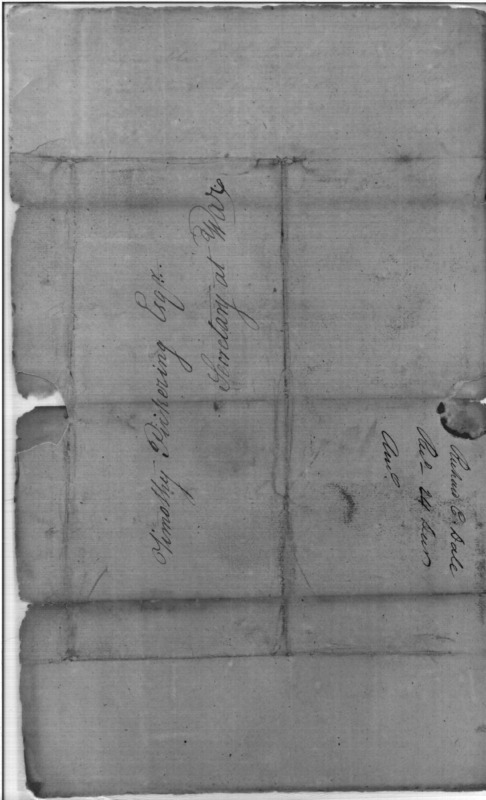 Timothy Pickering Esqr.
Secretary at War
Richard Dale
24
Ansd